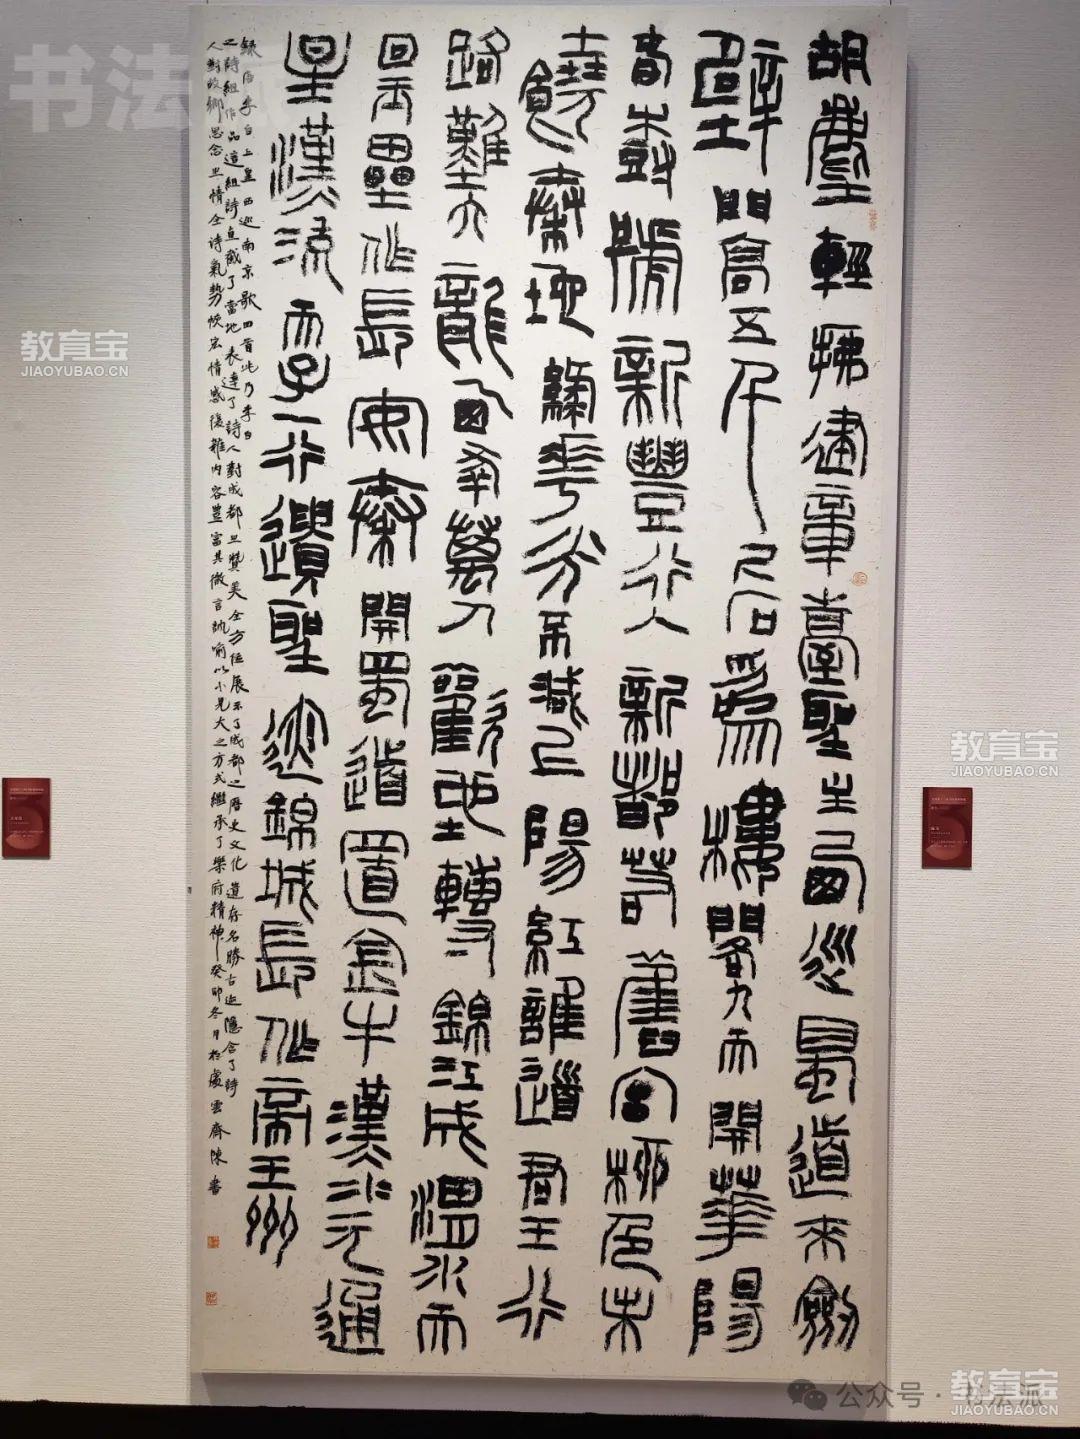 胡塵輕拂建章臺聖主西巡蜀道來劍
壁門高五千尺石為樓閣九天開華陽
春樹號新豐行入新都若舊宮柳色未
饒秦地綠花光不減上陽紅誰道君王行
路難六龍西幸萬人歡地轉錦江成渭水天
回玉壘作長安秦開蜀道置金牛漢水元通
星漢流天子一行遺聖迹錦城長作帝王州
録唐李白上皇西巡南京歌四首此乃李白
之詩組作品這組詩直截了當地表達了詩人對成都之贊美全方位展示了成都之歷史文化遺存名勝古迹隱含了詩
人對故鄉思念之情全詩氣勢恢宏情感復雜内容豐富其微言諷喻以小見大之方式繼承了樂府精神癸卯冬月於虛雲齋陳書
书法派
教育宝
JIAOYUBAO.CN
教育宝
JIAOYUBAO.CN
教育宝
JIAOYUBAO.CN
公众号·书法派